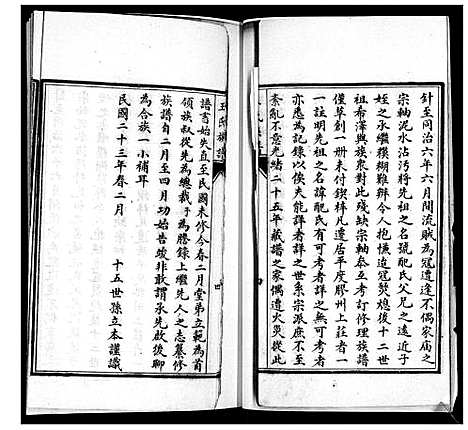 針至同治六年六月間流賊為寇遭逢不偶家廟之
宗軸泥水沾污將先祖之名號配氏父兄之遠近子
姪之承繼模糊難辨令人抱憾迨寇熒煌後十二世
祖希澤與族眾對此殘缺宗軸叅互考訂修理族譜
僅草創一册未付鍥梓凡遷居平度膠州上莊者一
一註明先祖之名諱配氏有可考者詳之無可考者
亦必為記錄以俟夫能詳者詳之世系宗派庶不至
紊亂不意光緒二十五年藏譜之家偶遭火災從此
王氏族譜
四
譜書始失直至民國未修今春二月堂弟立範為首
領族叔從先為總裁子為謄錄上繼先人之志纂修
族譜自二月至四月功始告竣非敢謂承先啟後聊
為合族一小補耳
民國二十三年春二月
十五世孫立本謹識